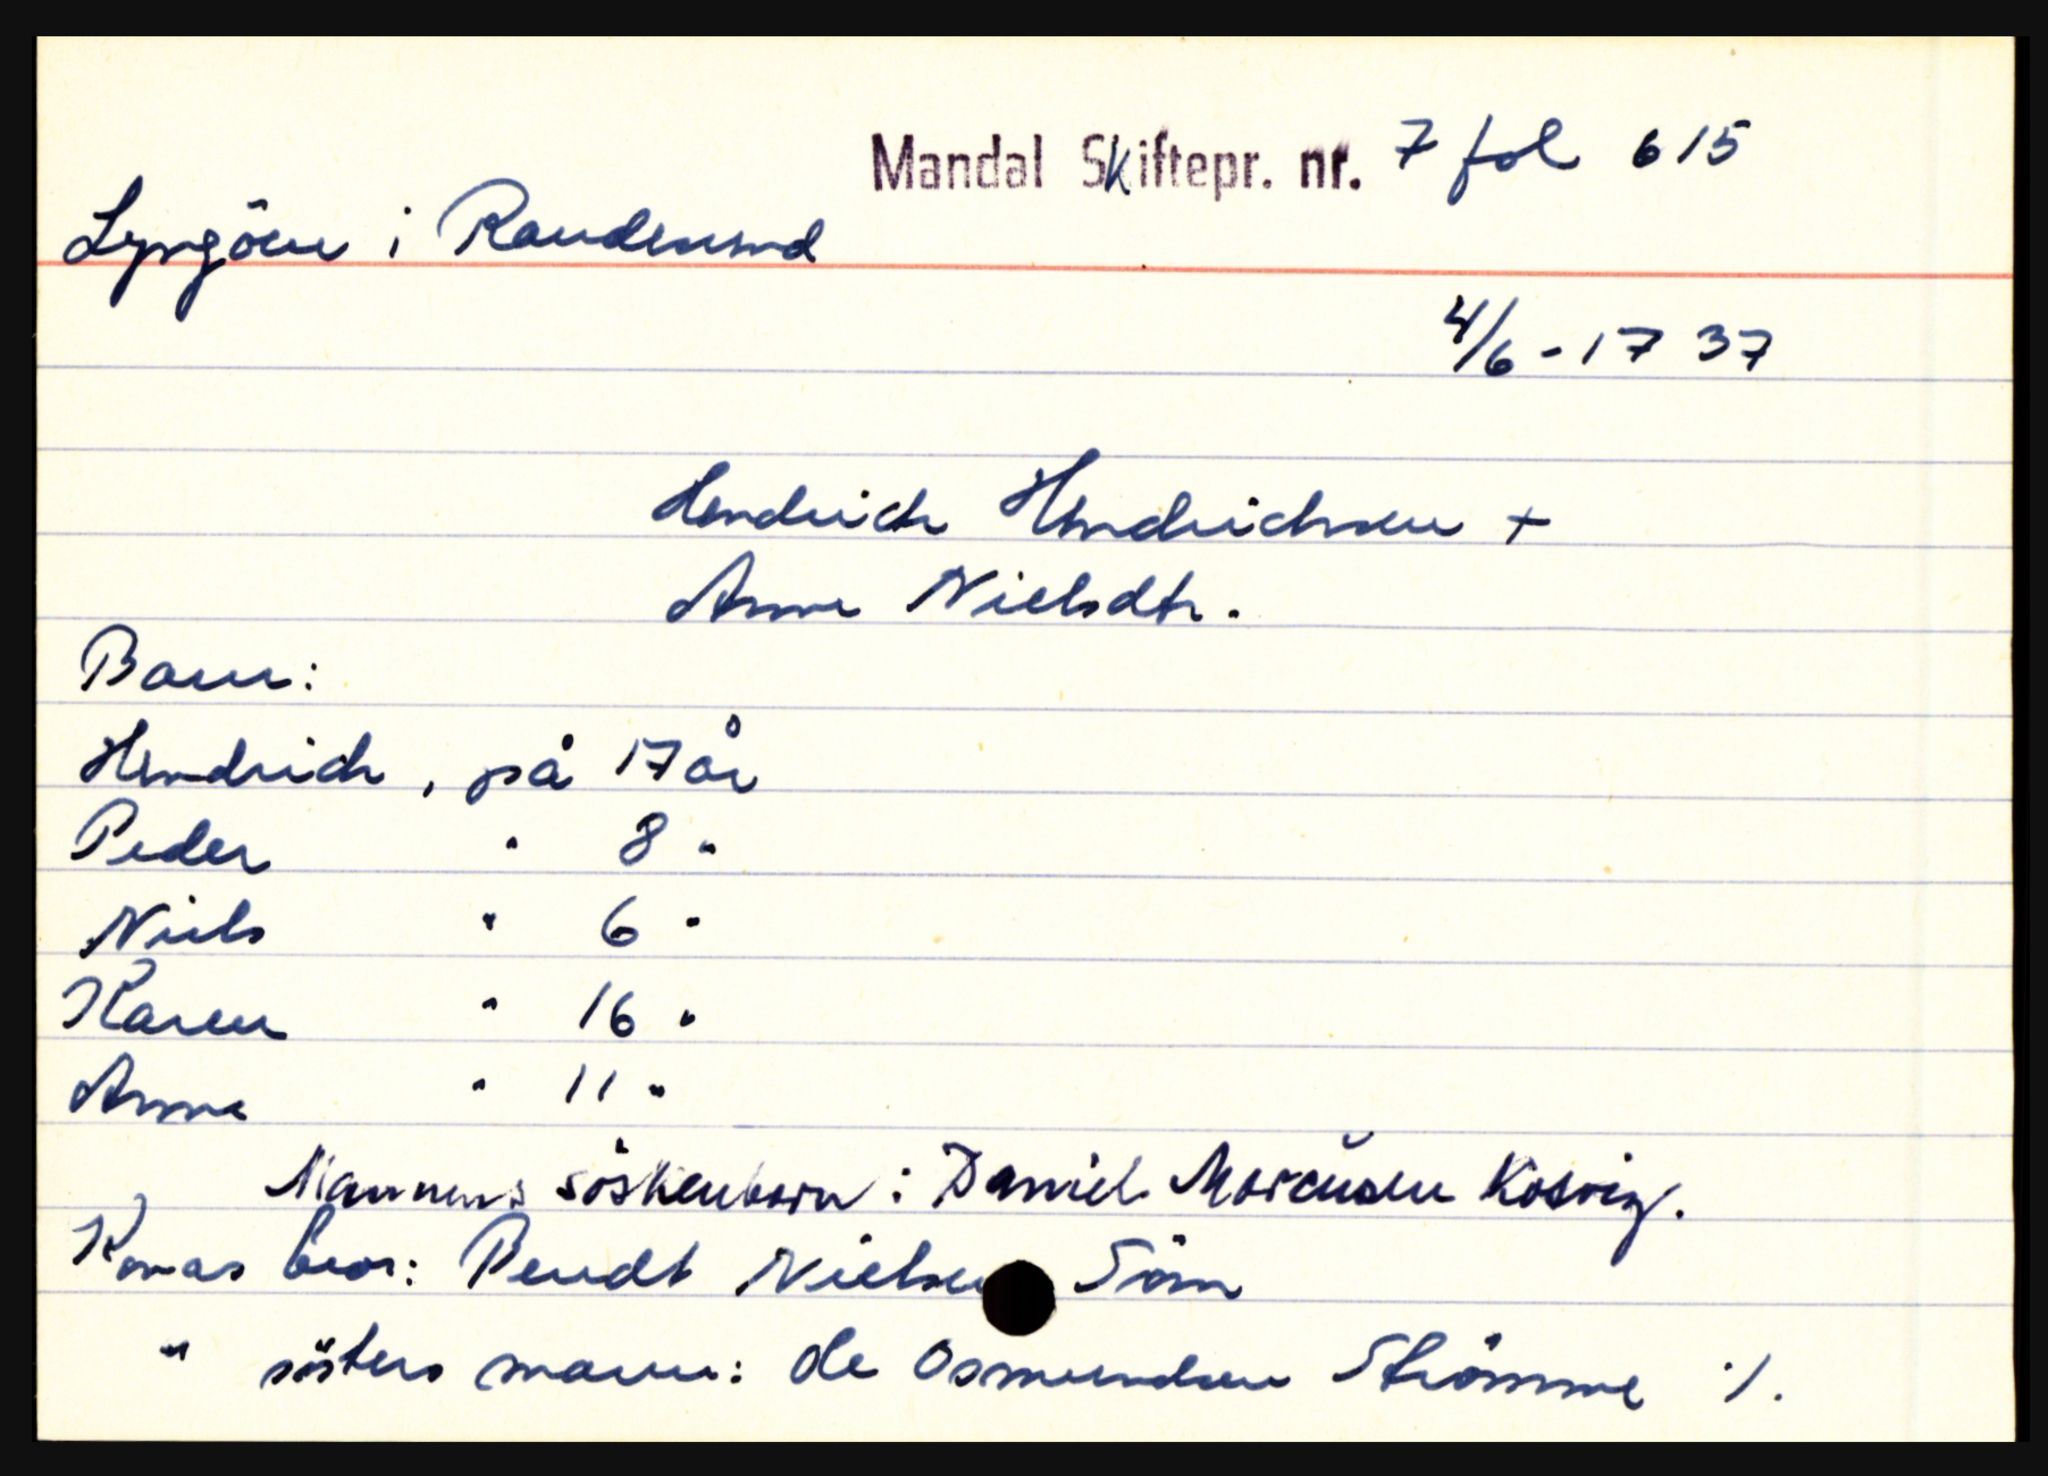 Mandal Skiftepr. nr. 7 fol 615
Lyngöen i Randesund
4/6 - 1737
Hendrich Hendrichsen +
Anne Nielsdtr.
Barn:
Hendrich, på 17 år
Peder " 8 "
Niels " 6 "
Karen " 16 "
Anne " 11 "
Mannens söskenbarn: Daniel Marcusen Kosvig.
Konas bror: Bendt Nielsen Söm
" sösters mann: Ole Osmundsen Strömme ./.